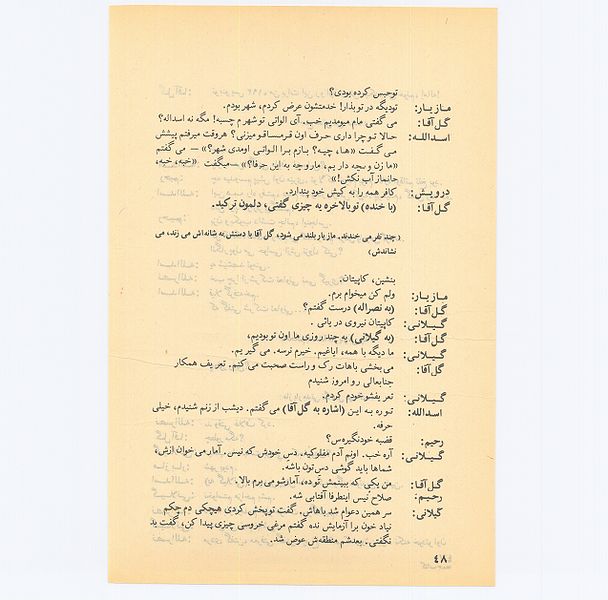 توحبس کرده بودی؟
مازیار: تودیگه در تو بذار! خدمتشون عرض کردم، شهر بودم.
گل‌آقا: می گفتی مام میومدیم خب. آی الواتی تو شهر م چسبه! مگه نه اسداله؟
اسدالله: حالا توچرا داری حرف اون قرمساقو میزنی؟ هروقت میرفتم پیشش
می‌گفت «ها، چیه؟ بازم برا الواتی اومدی شهر؟» — می گفتم
«ما زن و بچه داریم، مار و چه به این حرفا؟» — میگفت «خبه، خبه،
جانماز آب نکش!»
درویش: کافر همه را به کیش خود پندارد.
گل‌آقا: (با خنده) تو بالاخره یه چیزی گفتی، دلمون ترکید.
(چند نفر می خندند. مازیار بلند می شود، گل آقا با دستش به شانه‌اش می زند، می
نشاندش)
بنشین، کاپیتان.
مازیار: ولم کن میخوام برم.
گل‌آقا: (به نصراله) درست گفتم؟
گیلانی: کاپیتان نیروی دریائی.
گل‌آقا: (به گیلانی) یه چند روزی ما اون تو بودیم،
گیلانی: ما دیگه با همه، ایاغیم. خیرم نرسه. می گیریم.
گل‌آقا: می‌بخشی باهات رک و راست صحبت می کنم. تعریف همکار
جنابعالی رو امروز شنیدم
گیلانی: تعریفشو خودم کردم.
اسدالله: تو ره به این (اشاره به گل‌آقا) می گفتم. دیشب از زنم شنیدم، خیلی
حرفه.
رحیم: قضیه خودنگیره‌س؟
گیلانی: آره خب. اونم آدم مفلوکیه. دس خودش که نیس. آمار می خوان ازش،
شماها باید گوشی دس تون باشه.
گل‌آقا: من یکی که ببینمش تو ده، آمارشو می برم بالا.
رحیم: صلاح نیس اینطرفا آفتابی شه.
گیلانی: سر همین دعوام شد باهاش. گفت تو پخش کردی هیچکی دم چکم
نیاد خون برا آزمایش نده گفتم مرغی خروسی چیزی پیدا کن، گفت ید
نگفتی. بعدشم منطقه‌ش عوض شد.
۸۴